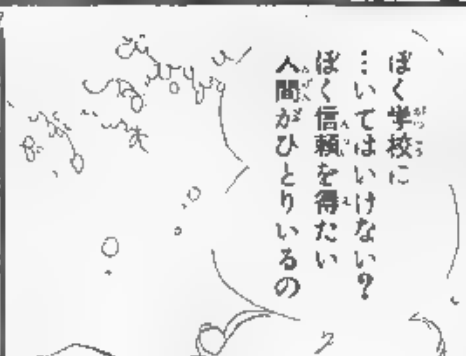 ぼく学校に
…いてはいけない?
ぼく信頼を得たい
人間がひとりいるの